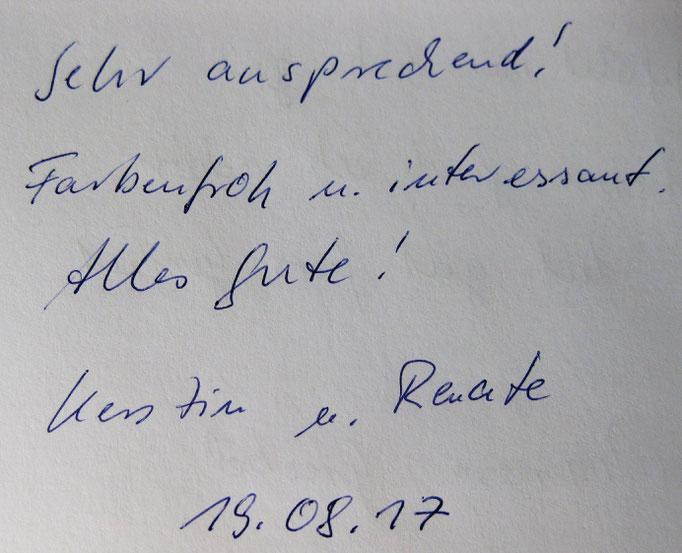 Sehr ansprechend!
Farbenfroh u. interessant.
Alles Gute!
Kerstin u. Renate
19.08.17